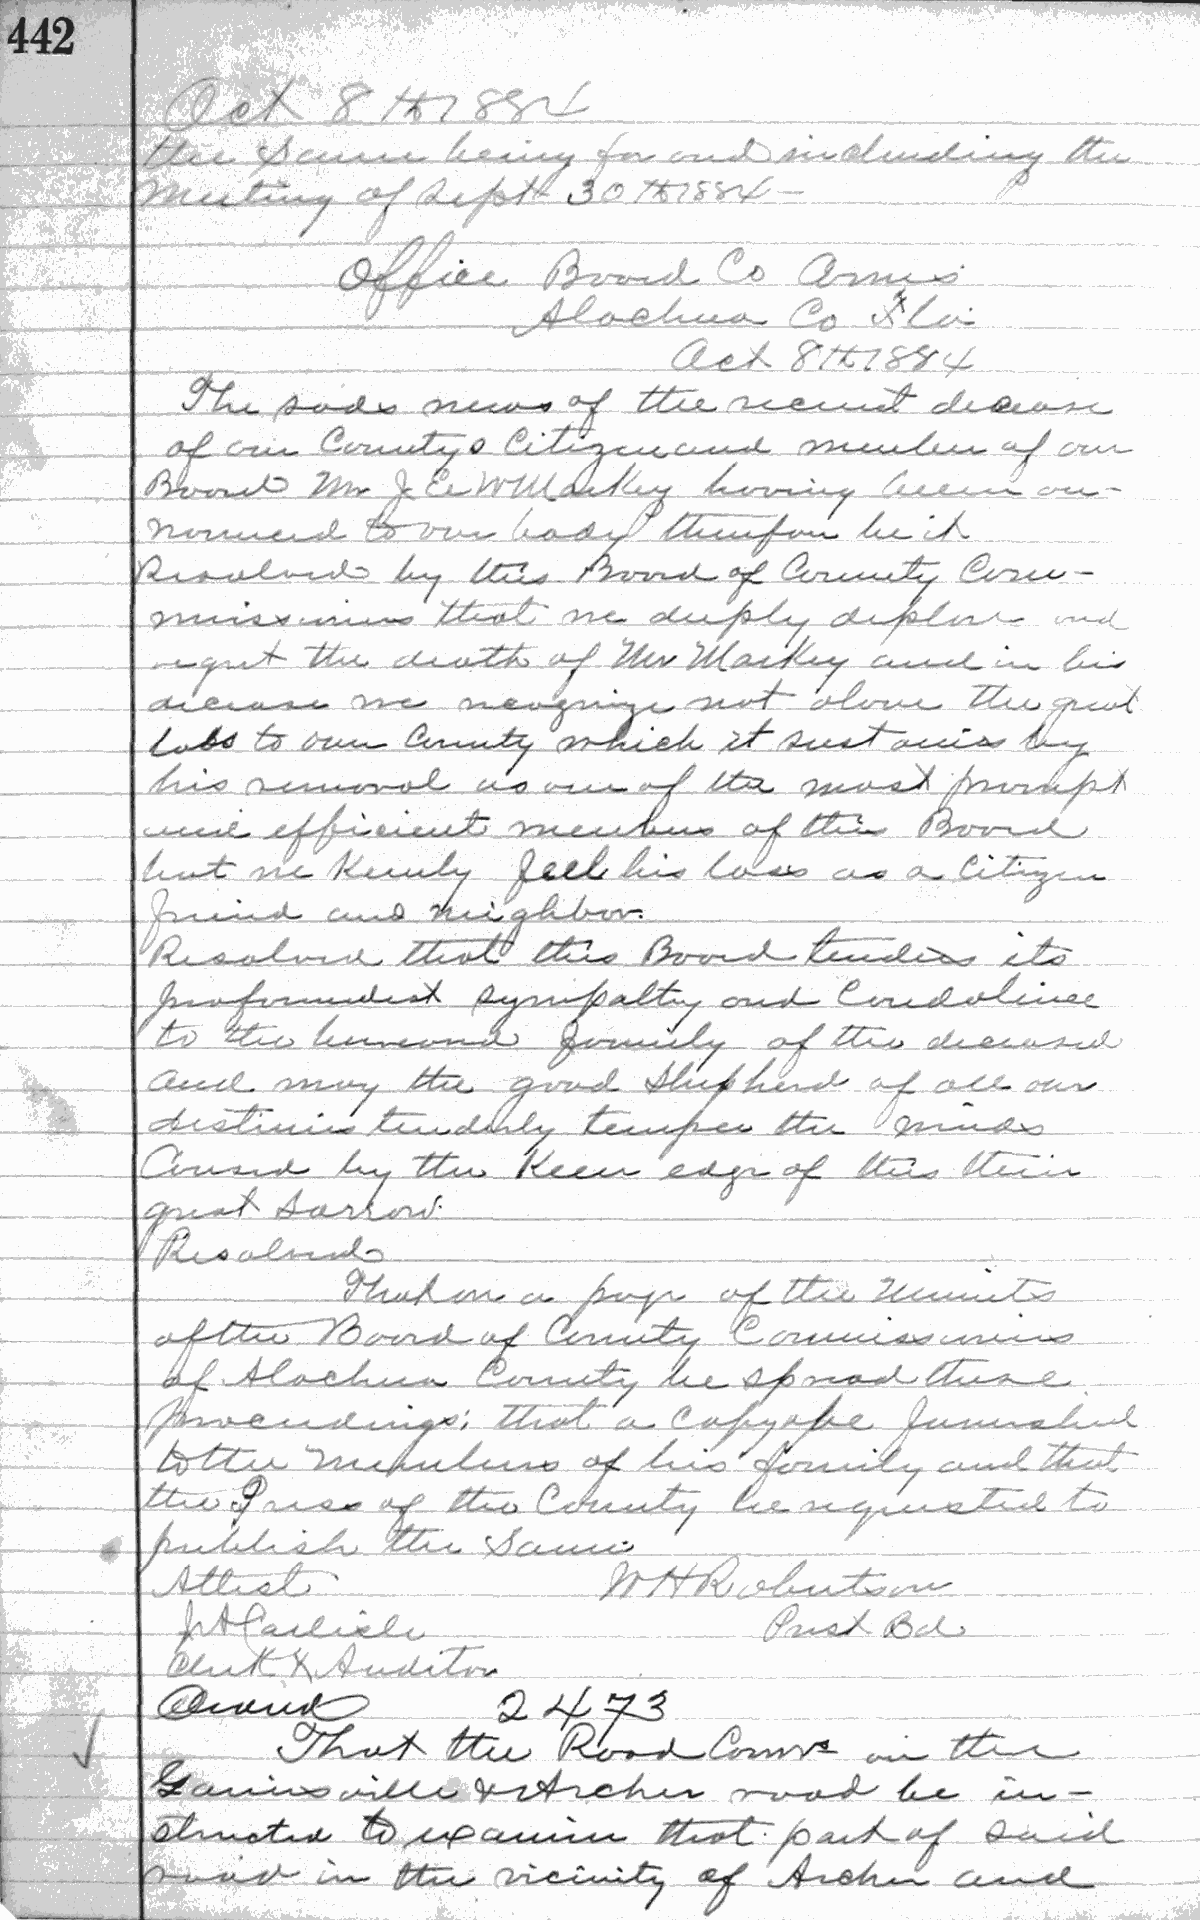 442
Oct 8th 1884
the same being for and including the
meeting of Sept 30th 1884 -
Office Board Co Comrs
Alachua Co Fla
Oct 8th 1884
The sad news of the recent decease
of our Countys Citizen and member of our
Board Mr J E W Markey having been an-
nounced to our body therefore be it
Resolved by this Board of County Com-
missioners that we deeply deplore and
regret the death of Mr Markey and in his
decease we recognize not alone the great
loss to our County which it sustains by
his removal as one of the most prompt
and efficient members of this Board
but we keenly feel his loss as a Citizen
friend and neighbor.
Resolved that this Board tenders its
profoundest sympathy and Condolence
to the bereaved family of the deceased
and may the good Shepherd of all our
destinies tenderly temper the winds
Caused by the Keen edge of this their
great sorrow.
Resolved
That on a page of the Minuts
of the Board of County Commissioners
of Alachua County be spread these
proceedings; that a Copy be furnished
to the Members of his family and that
the Press of the County be requested to
publish the same.
Attest W H Robertson
J A Carlisle Prest Bd
Clerk & Auditor
Ordered 2473
That the Road Comrs on the
Gainesville & Archer road be in-
structed to examine that part of said
road in the vicinity of Archer and